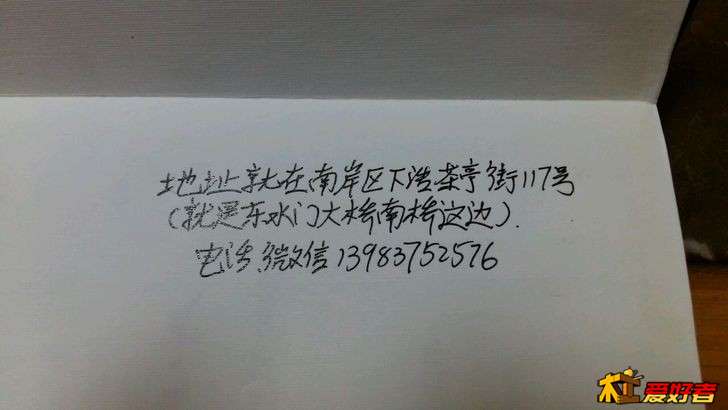 地址就在南岸区下浩茶亭街117号
(就是东水门大桥南桥这边).
电话,微信13983752576
杠爱好者